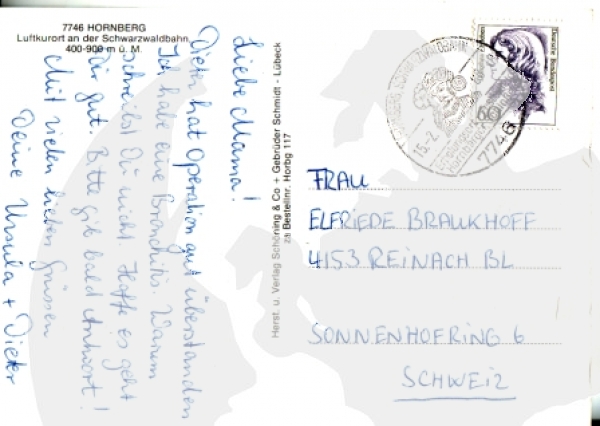 7746 HORNBERG
Luftkurort an der Schwarzwaldbahn
400-900 m ü. M.
Liebe Mama!
Dieter hat Operation gut überstanden
Ich habe eine Bronchitis. Warum
schreibst Du nicht. Hoffe es geht
Dir gut. Bitte gib bald Antwort!
Mit vielen lieben Grüssen
Deine Ursula + Dieter
Herst. u. Verlag Schöning & Co + Gebrüder Schmidt - Lübeck
Bestellnr. Horbg 117
Deutsche Bundespost
60
SCHWARZWALDBAHN
15.2.
7746
FRAU
ELFRIEDE BRAUKHOFF
4153 REINACH BL
SONNENHOFRING 6
SCHWEIZ